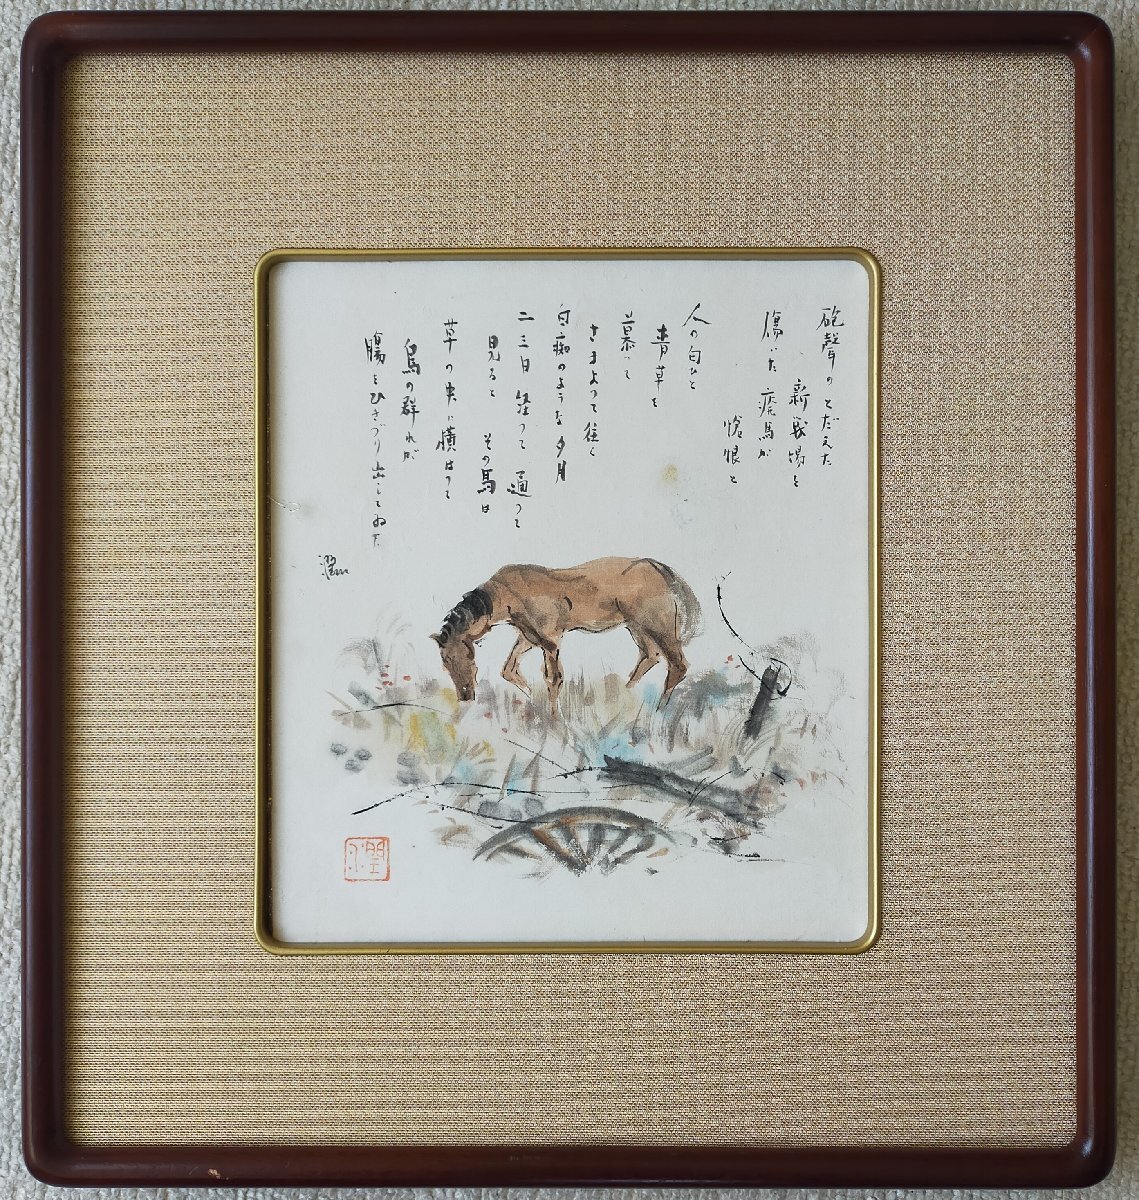 砲聲のとだえた
新戦場を
傷いた 病馬が
愴恨と
人の匂ひと
青草を
慕って
さまよって往く
白痴のような夕月
二三日 経って 通って
見ると その馬は
草の中に横はって
烏の群れが
腸をひきづり出してゐた
潤